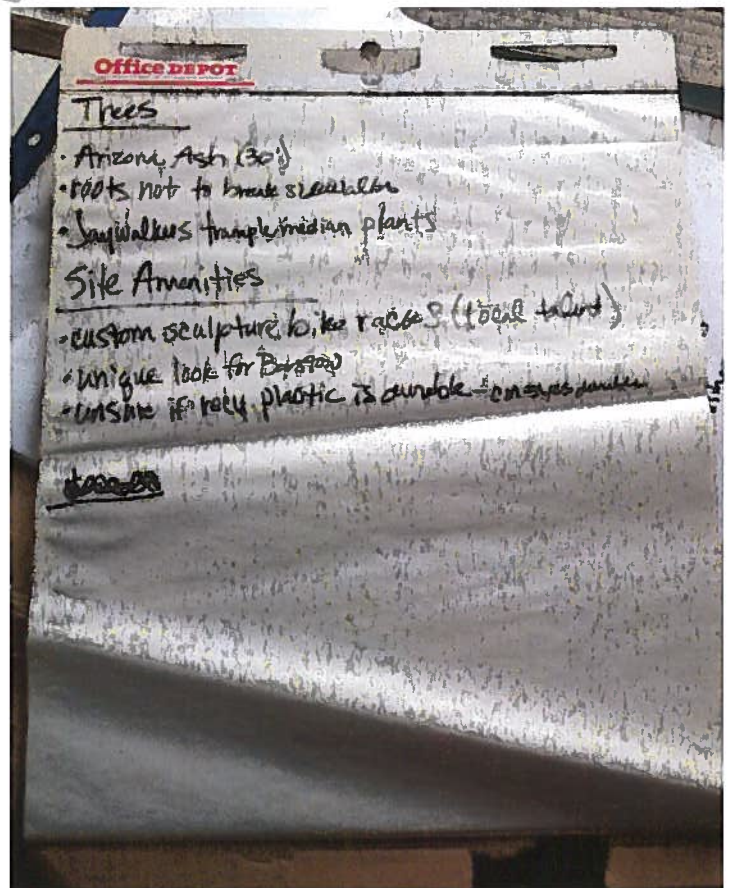 Office DEPOT
Trees
• Arizona Ash (30')
• roots not to break sidewalks
• Jaywalkers trample median plants
Site Amenities
• custom sculpture bike racks (local talent)
• unique look for
• unsure if recy. plastic is durable -